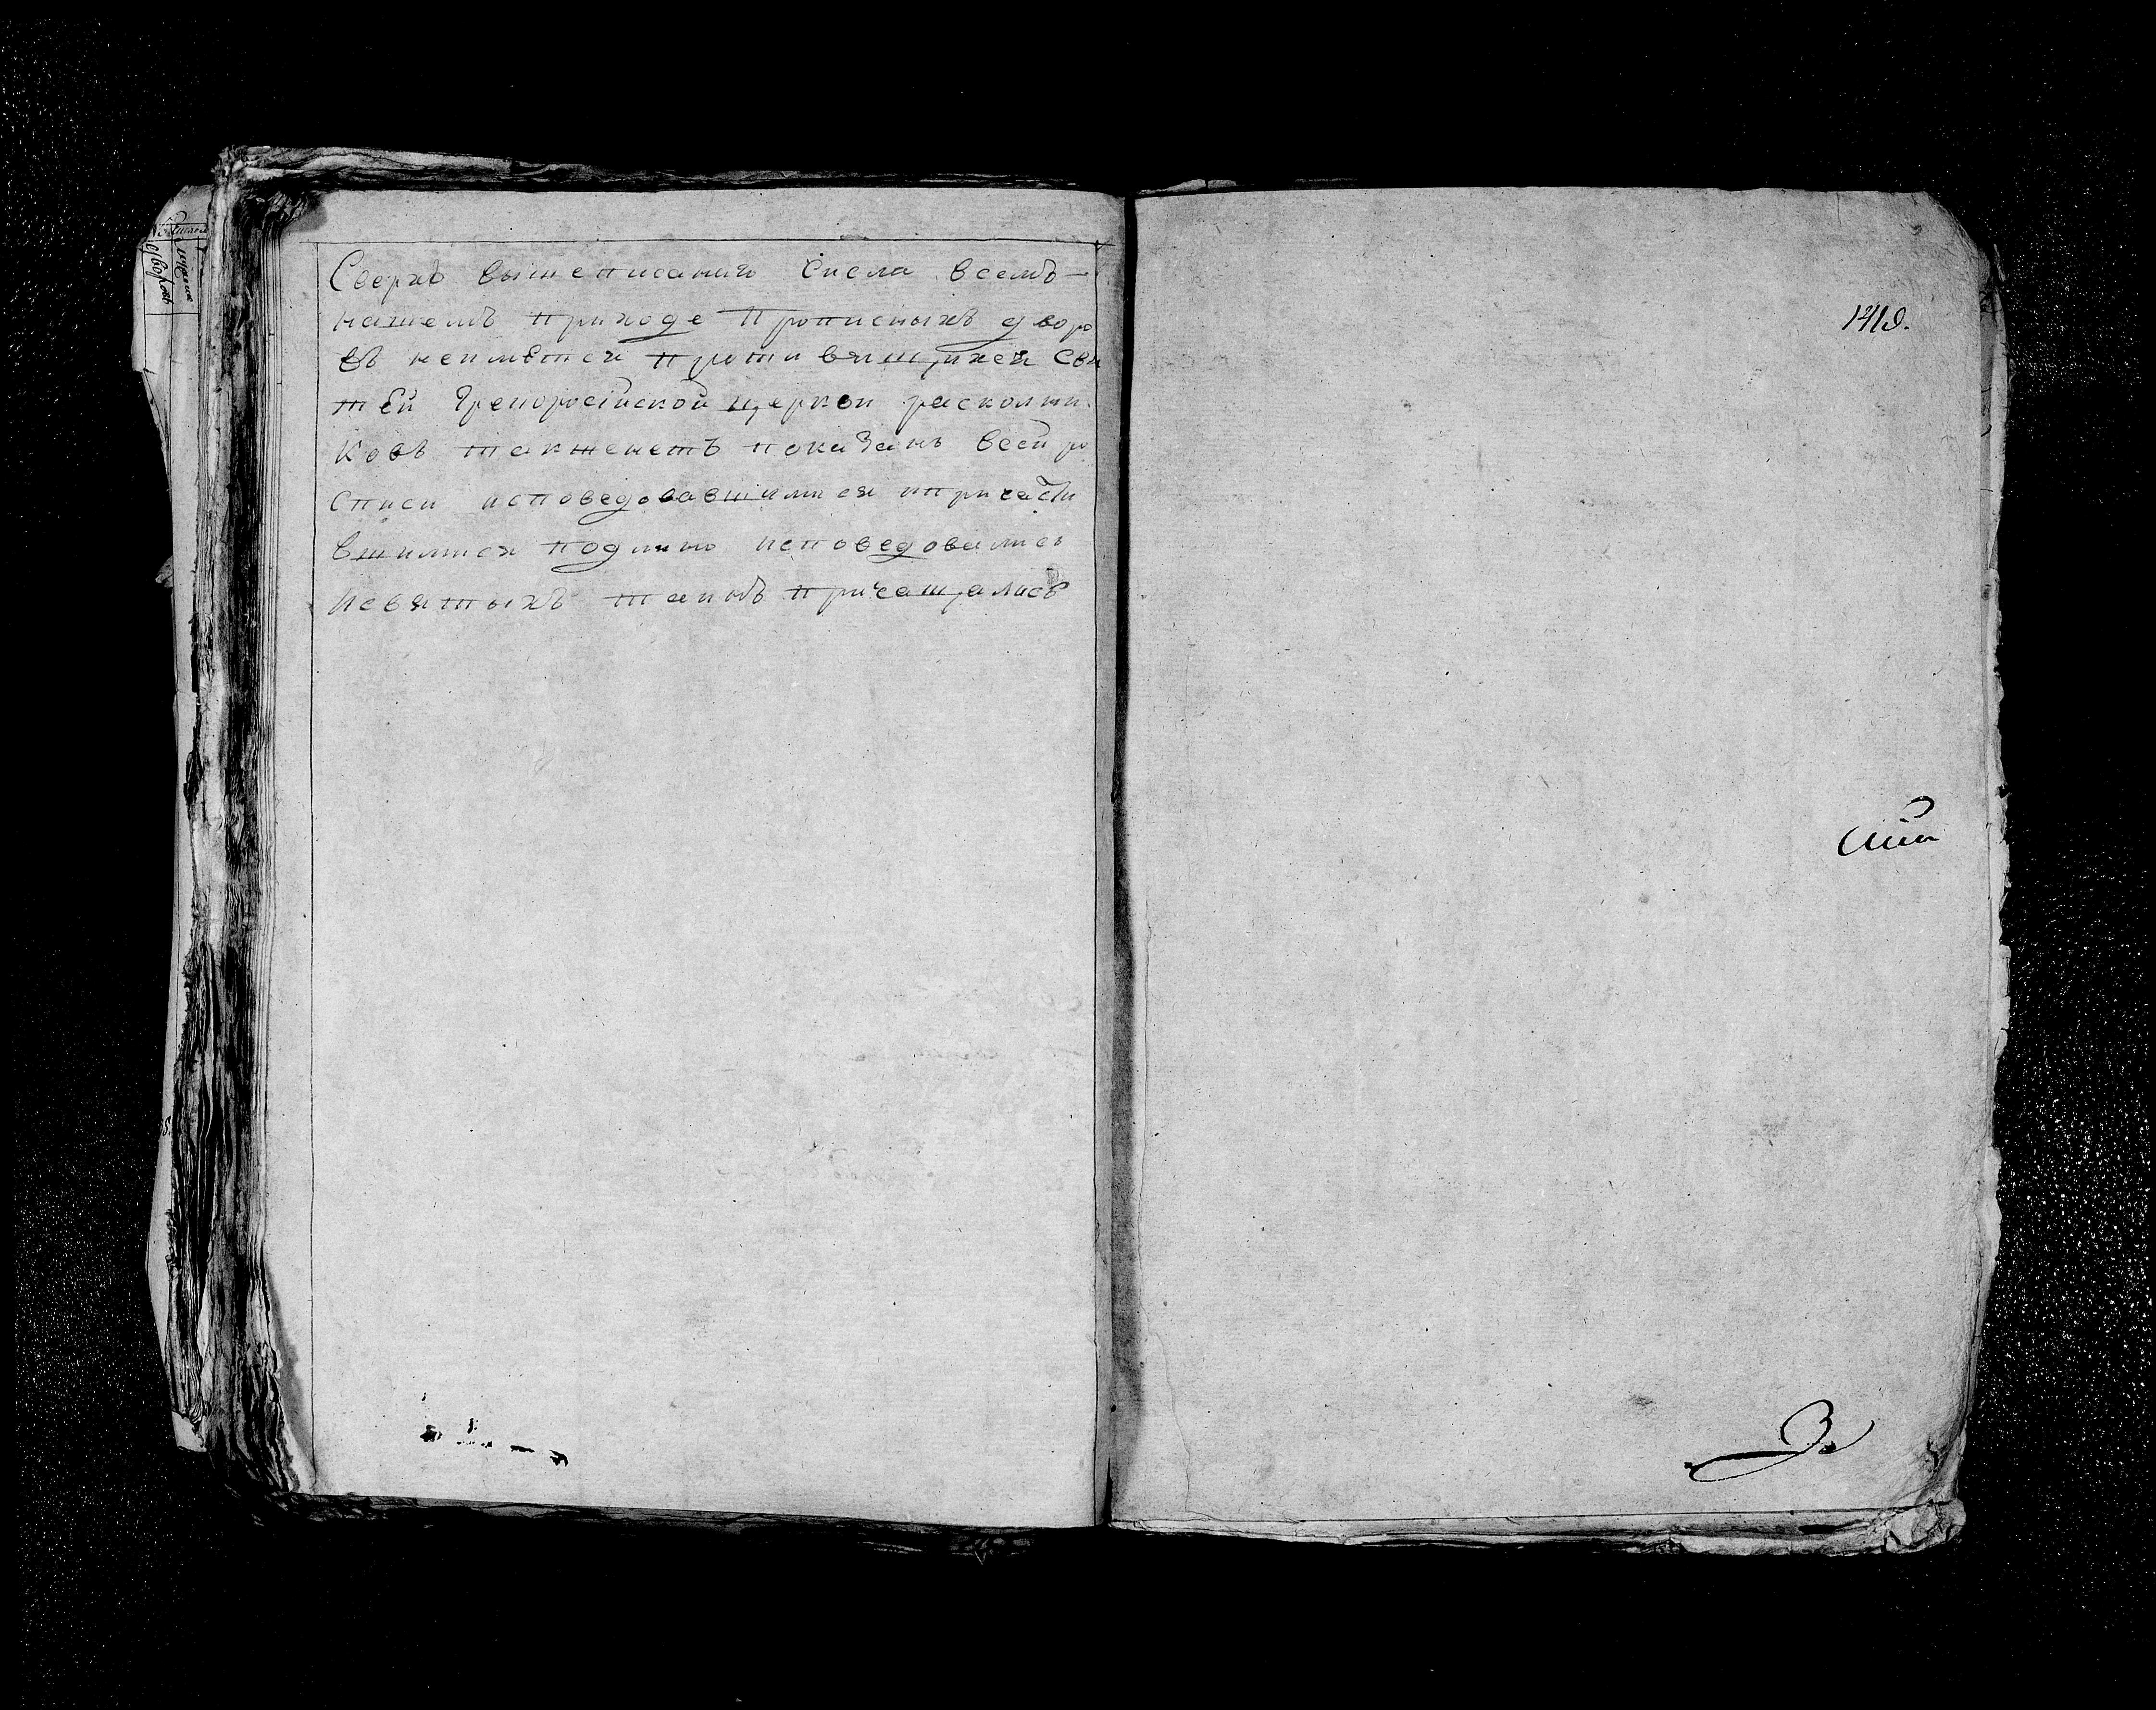 Сверхъ вышеписаннго числа всемъ
нашемъ приходе прописныхъ дворо
въ неимѣтся противящихся свя
тей Грекоросiйской церкви расколни
ковъ такженетъ показанъ всей ро
списи исповедовавшимися ипричасти
вшимися подлино исповедовались
исвятыхъ таинъ причащались
1419.